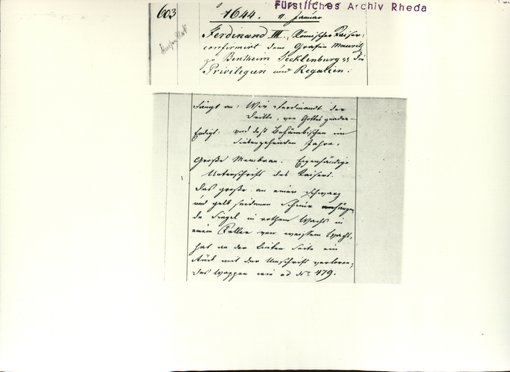 Fürstliches Archiv Rheda
603
1644. 11. Januar
Ferdinand III., Römischer Kaiser,
confirmirt dem Grafen Mauritz
zu Bentheim Tecklenburg die
Privilegien und Regalien.
Fängt an: Wir Ferdinandt der
Dritte, von Gottes gnaden
Endigt: und deß Behaimbischen im
Siebenzehenden Jahre.
Großes Membran. Eigenhändige
Unterschrift des Kaisers.
Das große an einer schwarz
und gelb seidenen Schnur anhängen-
de Siegel in rothem Wachs in
einer Kapsel von weißem Wachs,
hat an der linken Seite ein
Stück mit der Umschrift verloren;
das Wappen wie ad No. 479.